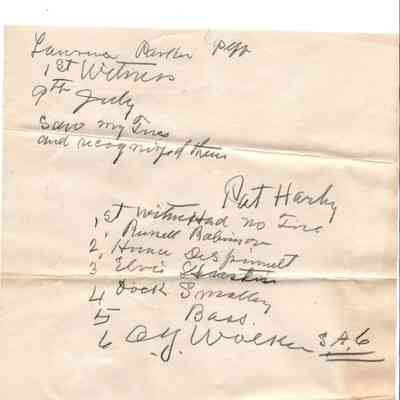 Parker Peff
1st Witness
9th July
saw my Tire
and recognized them
Pat Harby
1st witness had no Tire
1, Russell Robinson
2, Horace
3 Elvis
4 Dock Smalley
5 Bass.
6 O.Y. Walker S.A.6